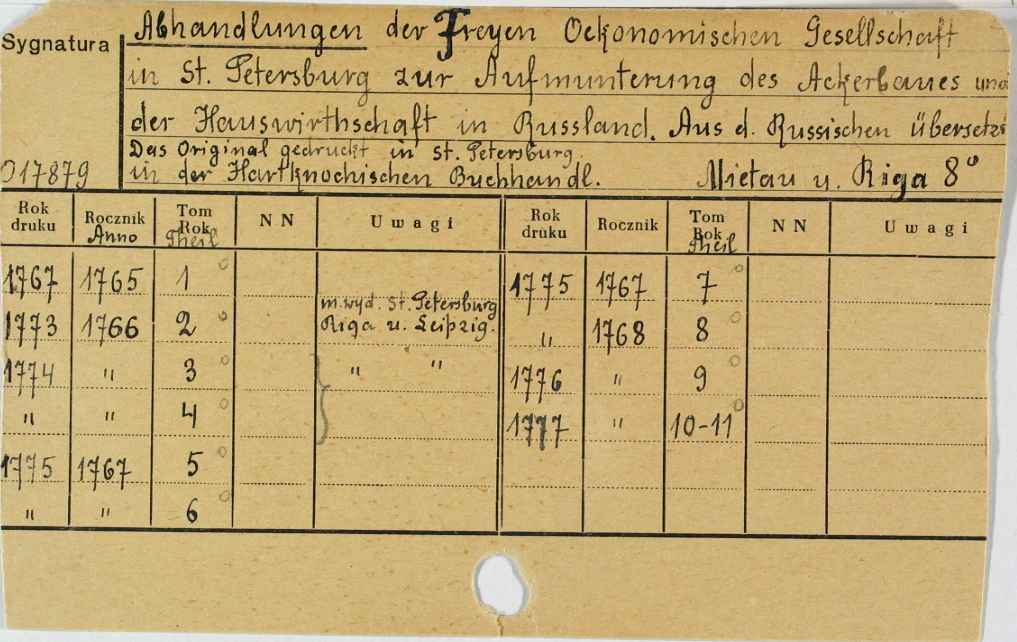 Sygnatura
Abhandlungen der Freyen Oekonomischen Gesellschaft
in St. Petersburg zur Aufmunterung des Ackerbaues und
der Hauswirthschaft in Russland. Aus d. Russischen übersetzt
Das Original gedruckt in St. Petersburg.
017879 in der Hartknochischen Buchhandl. Mietau u. Riga 8°
Rok druku Rocznik Anno Tom Rok Theil N N Uwagi Rok druku Rocznik Tom Rok Theil N N Uwagi
1767 1765 1 ° 1775 1767 7 °
m. wyd. St. Petersburg
1773 1766 2 ° Riga u. Leipzig. " 1768 8 °
1774 " 3 ° " " 1776 " 9 °
" " 4 ° 1777 " 10-11 °
1775 1767 5 °
" " 6 °